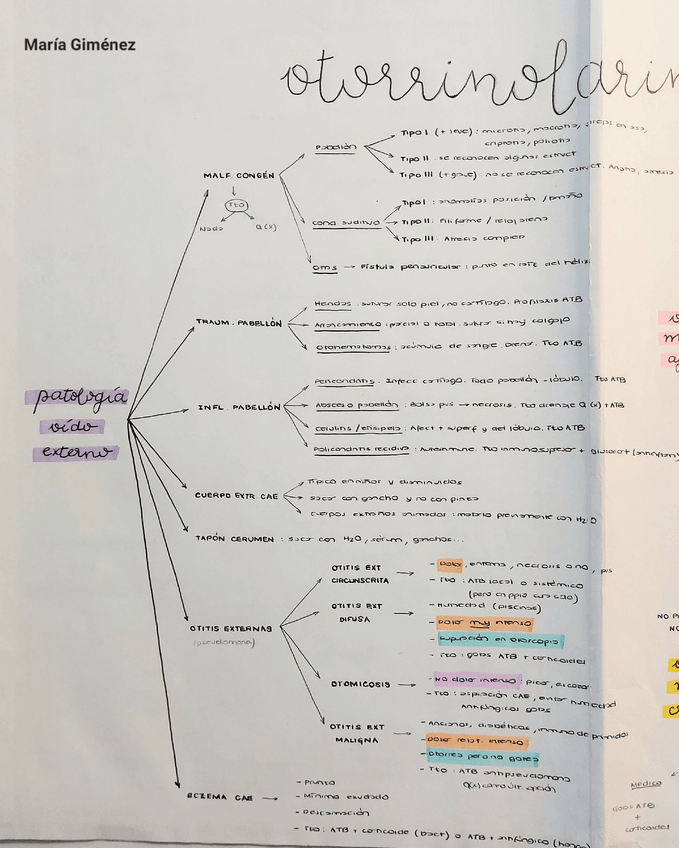 María Giménez
otorrinolarin
Pabellón
Tipo I (+ leve) : microtia, macrotia, orejas en asa,
criptotia, poliotia
Tipo II : se reconocen algunas estruct
Tipo III (+ grave) : no se reconocen estruct. Anotia,
MALF. CONGÉN
Tto
Nada
Q(x)
Cond auditivo
Tipo I : anomalías posición / tamaño
Tipo II : Filiforme / relaj
Tipo III : Atresia completa
Otros → Fístula periauricular : punto en raíz del hélix
TRAUM. PABELLÓN
Heridas : suturar solo piel, no cartílago. Profilaxis ATB
Arrancamiento : parcial o total. sutura si muy colgajo
Otohematomas : acúmulo de sangre. drenar. Tto ATB
patología
oído
externo
INFL. PABELLÓN
Pericondritis : Infecc cartílago. Todo pabellón - lóbulo. Tto ATB
Absceso pabellón : Bolsa pus → necrosis. Tto drenaje Q(x) + ATB
Celulitis / erisipela : Afect + superf y del lóbulo. Tto ATB
Policondritis recidiv : Autoinmune. Tto inmunosupresor + glucocort
CUERPO EXTR. CAE
Típico en niños y disminuidos
sacar con gancho y no con pinza
Cuerpos extraños animados : matarlo previamente con H2O
TAPÓN CERUMEN : sacar con H2O, sérum, ganchos...
OTITIS EXTERNAS
(pseudomona)
OTITIS EXT
CIRCUNSCRITA →
- Dolor, eritema, necrosis ono, pus
- Tto : ATB local o sistémico
OTITIS EXT
DIFUSA →
- Humedad (piscinas)
- Dolor muy intenso
- supuración en otoscopia
- Tto : gotas ATB + corticoides
OTOMICOSIS →
- No dolor intenso : picor, escozor
- Tto : aspiración CAE, evitar humedad
Antifúngicos gotas
OTITIS EXT
MALIGNA →
- Ancianos, diabéticos, inmunodeprimidos
- Dolor relat. intenso
- Otorrea
- Tto : ATB antipseudomona
Q(x) como últ. opción
ECZEMA CAE →
- Prurito
- Mínimo exudado
- Descamación
- Tto : ATB + corticoide (bact) o ATB + antifúngico (hongo)
NO
Médico
Gotas ATB
+
corticoides